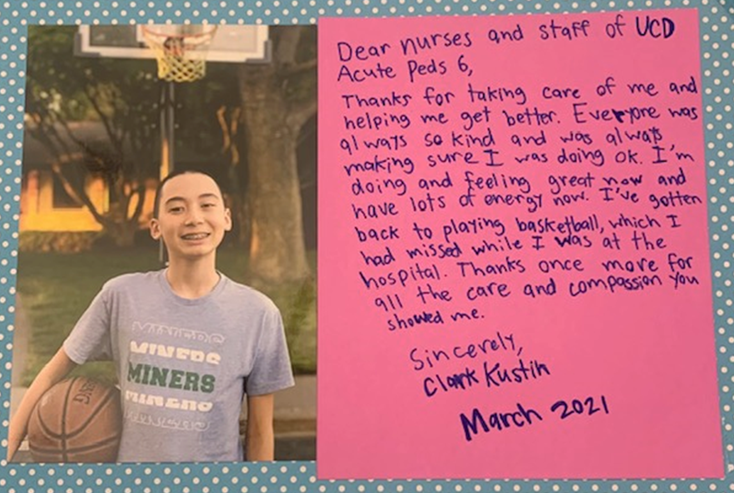 MINERS
MINERS
MINERS
MINERS
MINERS
Dear nurses and staff of UCD
Acute Peds 6,
Thanks for taking care of me and
helping me get better. Everyone was
always so kind and was always
making sure I was doing ok. I'm
doing and feeling great now and
have lots of energy now. I've gotten
back to playing basketball, which I
had missed while I was at the
hospital. Thanks once more for
all the care and compassion you
showed me.
Sincerely,
Clark Kustin
March 2021